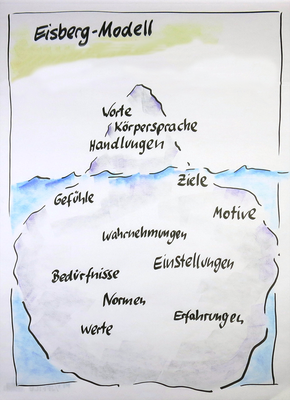 Eisberg-Modell
Worte
Körpersprache
Handlungen
Ziele
Gefühle
Motive
Wahrnehmungen
Einstellungen
Bedürfnisse
Normen
Erfahrungen
Werte